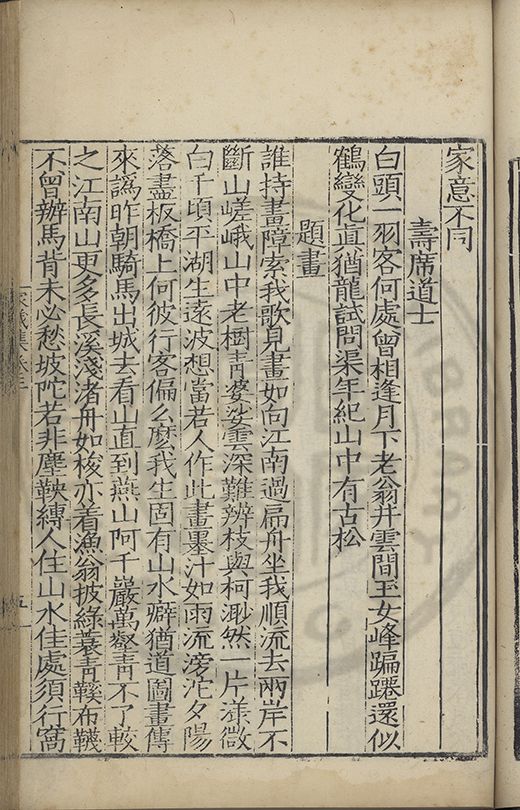 家意不同
壽席道士
白頭一羽客何處曾相逢月下老翁井雲間玉女峰蹁躚還似
鶴變化直猶龍試問渠年紀山中有古松
題畫
誰持畫障索我歌見畫如向江南過扁舟坐我順流去兩岸不
斷山嵯峨山中老樹靑婆娑雲深難辨枝與柯渺然一片漾微
白千頃平湖生遠波想當若人作此畫墨汁如雨流滂沱夕陽
落盡板橋上何彼行客偏么麽我生固有山水癖猶道圖畫傳
來譌昨朝騎馬出城去看山直到燕山阿千巖萬壑靑不了較
之江南山更多長溪淺渚舟如梭亦着漁翁披綠蓑靑鞵布韈
不曾辦馬背未必愁坡陀若非塵鞅縛人住山水佳處須行窩
集卷三
五